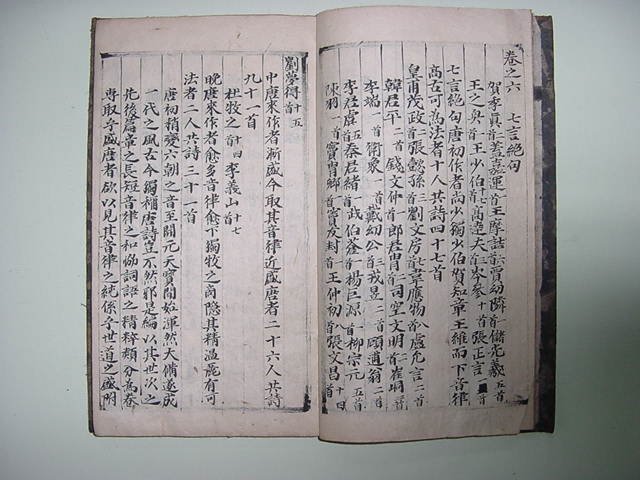 卷之六 七言絕句
賀季真 蓋嘉運 王摩詰 賈幼隣 儲光羲五首
王之奐 王少伯 高達夫 岑參 張正言
七言絕句唐初作者尚少獨少伯賀知章王維而下音律
高古可為法者十人共詩四十七首
皇甫茂政 張懿孫 劉文房 韋應物 盧允言二首
韓君平二首 錢文仲 郎君胄 司空文明 崔峒二首
李端一首 衛象一首 戴幼公 戎昱二首 顧逋翁二首
李君虞 秦君緒 武伯蒼 楊巨源 柳宗元五首
陳羽一首 竇胄鄉 竇友封 王仲初 張文昌
劉夢得十五首
中唐來作者漸盛今取其音律近盛唐者二十六人共詩
九十一首
杜牧之十四首 李義山十七首
晚唐來作者愈多音律愈下獨牧之商隱其精温麗有可
法者二人共詩三十一首
唐初稍變六朝之音至開元天寶間始渾然大備遂成
一代之風古今獨稱唐詩豈不然耶是編以其世次之
先後篇章之長短音律之和詞語之精粹類分為卷
專取乎盛唐者欲以見其音律之純係乎世道之盛